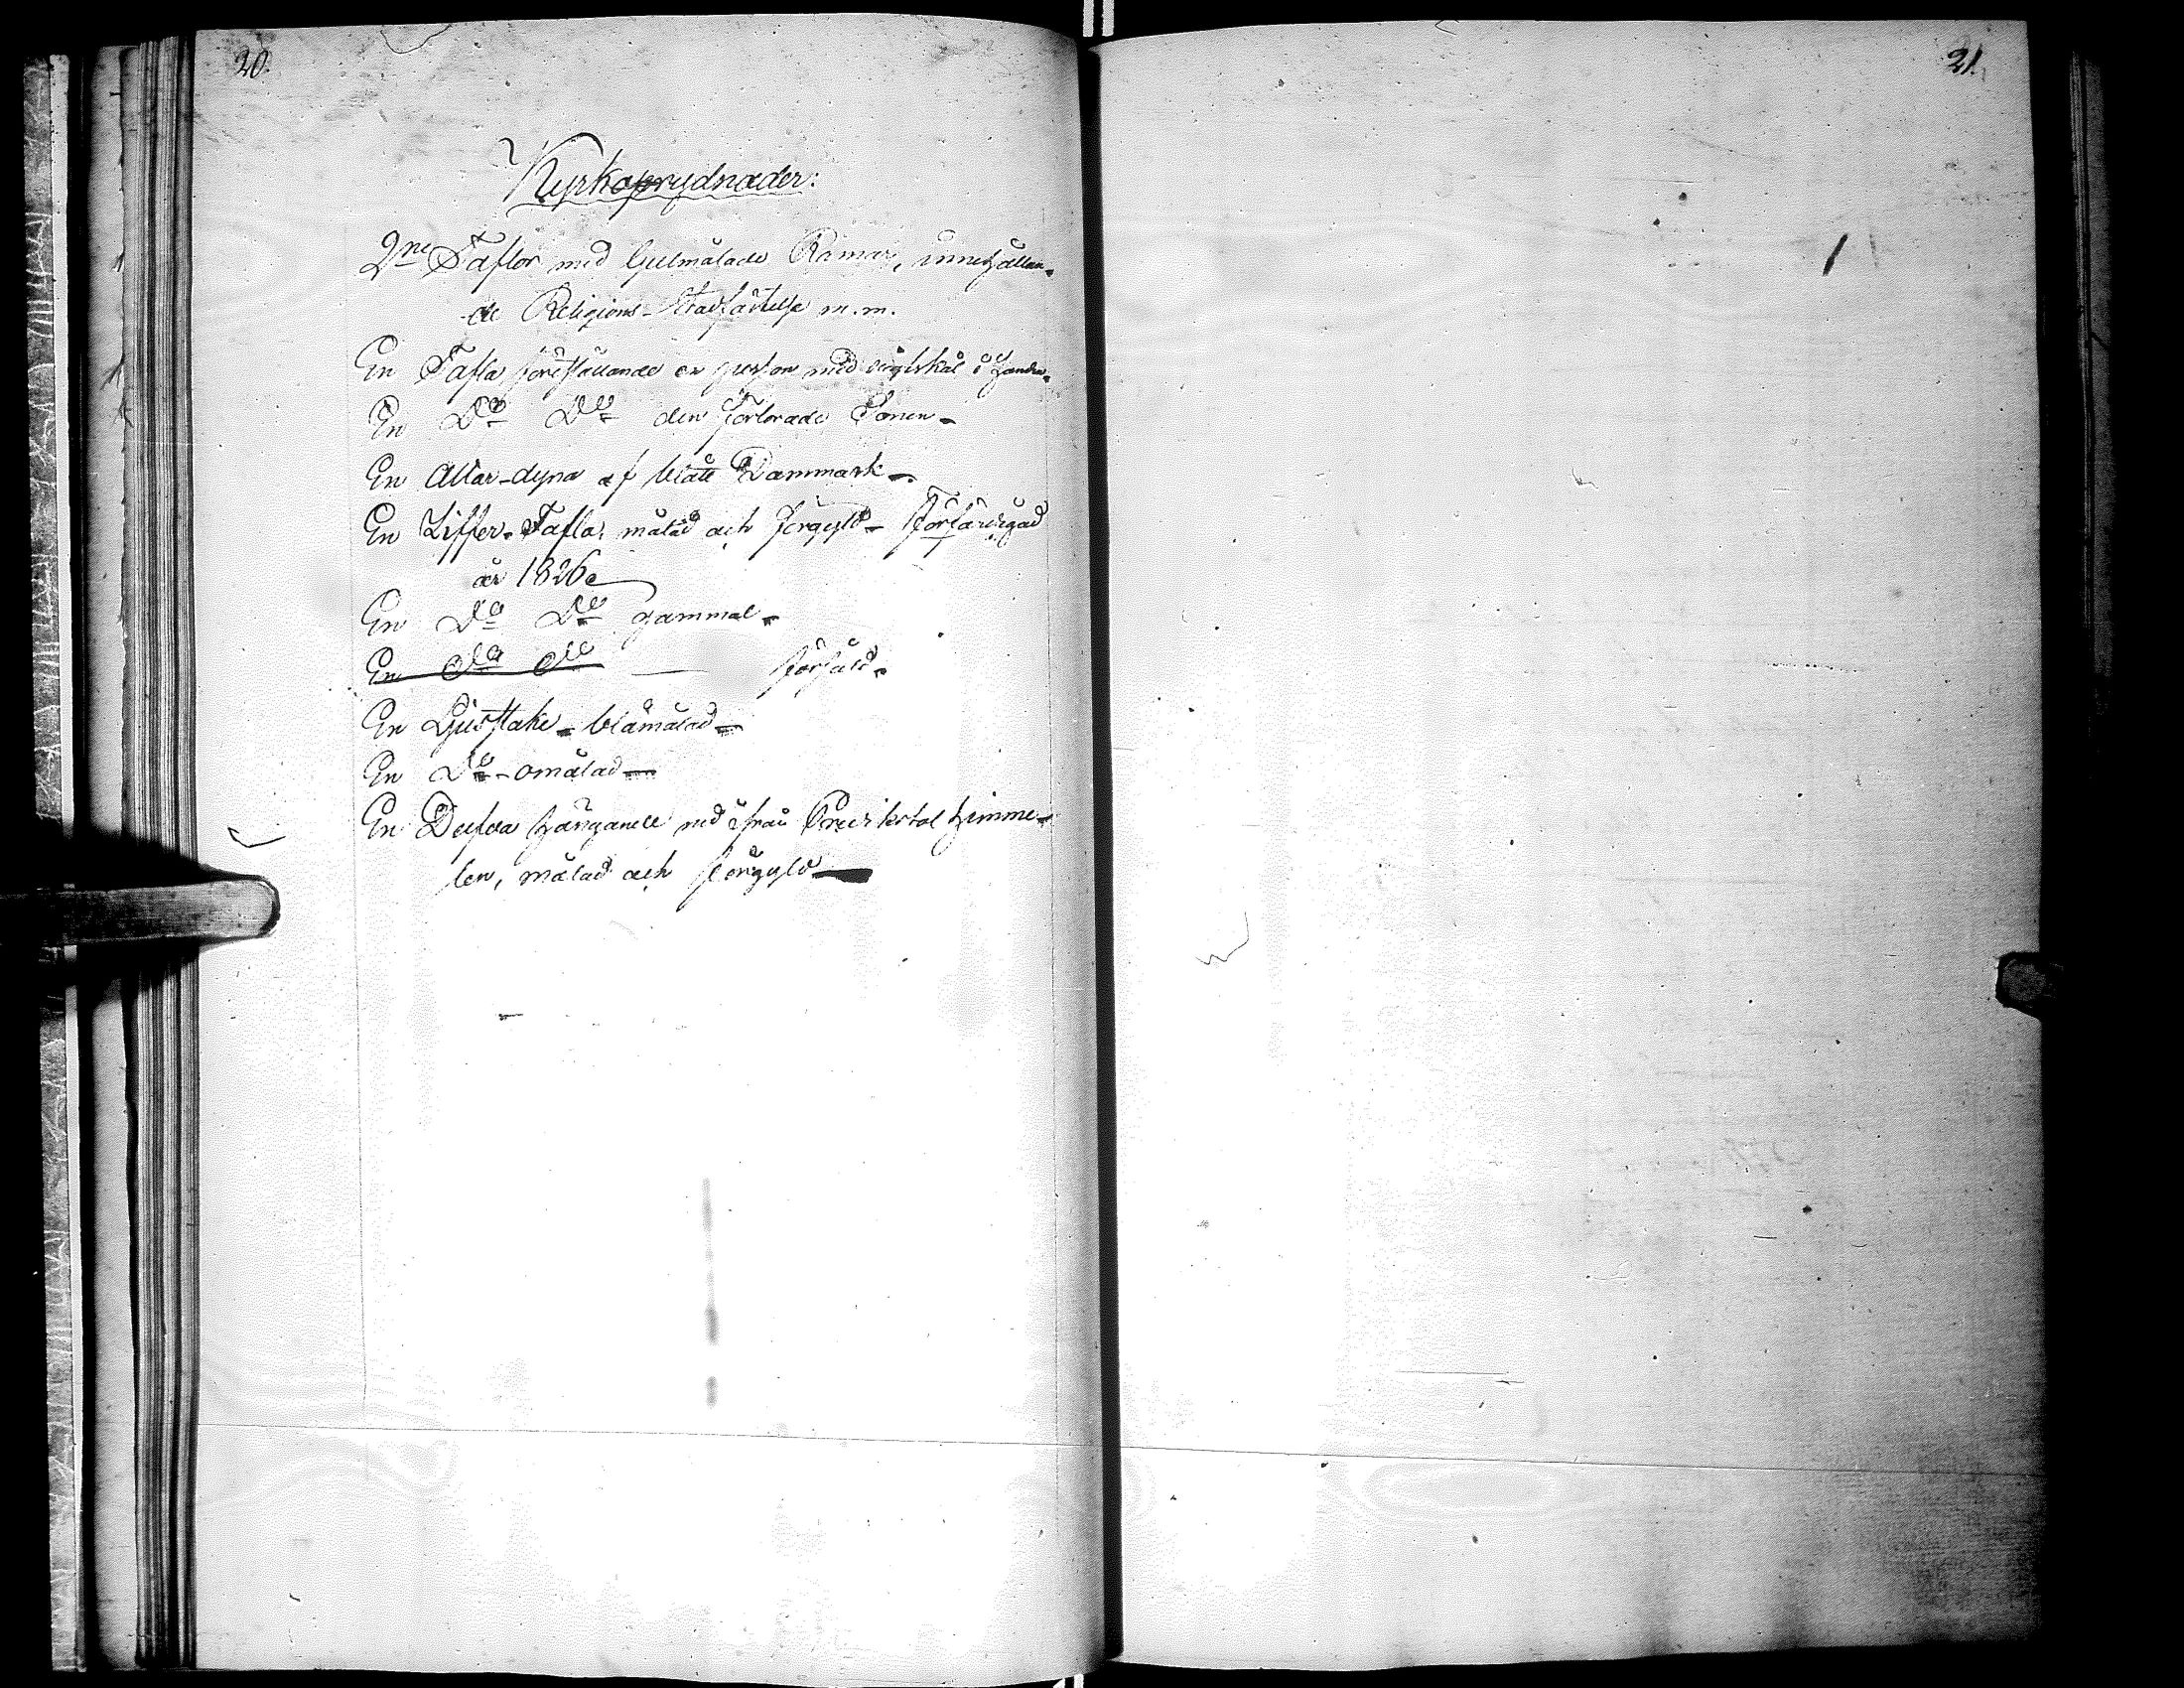 20.
21.
Kyrkoprydnader:
2ne Taflor med Gulmålade Ramar, innehållan-
de Religions-Stadfästelse m.m.
En Tafla föreställande en person med vigtskål i handen
En Do Do den förlorade Sonen-
En Altar-dyna af blått Dammask-
En Ziffer-Tafla, målad och förgyld- förfärdigad
år 1826
En Do Do gammal-
En do do — försåld-
En Ljusstake-blåmålad-
En Do-omålad-
En Dufva hängande ned ifrån Predikstol himme-
len, målad och förgyld-